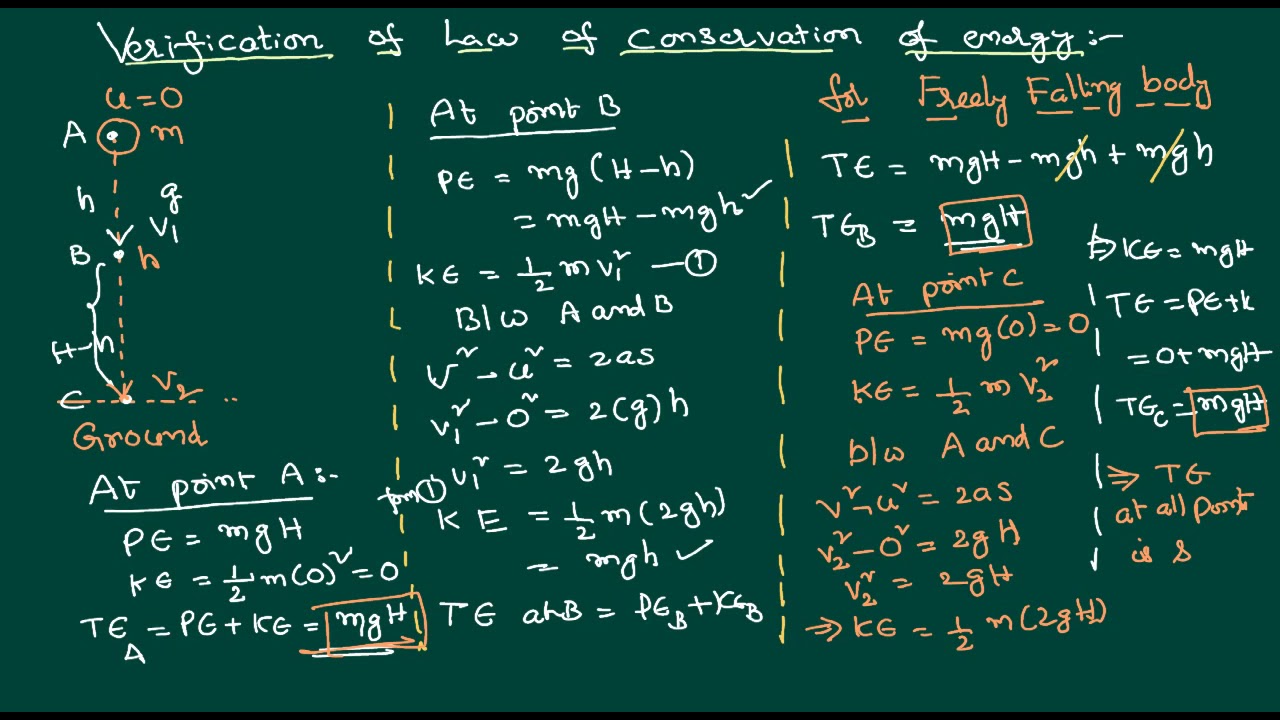 Verification of Law of Conservation of energy:-
for Freely Falling body
u=0
A m
h g
V₁
B h
H-h
C V₂
Ground
At point A:-
PE = mgH
KE = 1/2 m(0)² = 0
TE_A = PE + KE = mgH
At point B
PE = mg(H-h)
= mgH - mgh ✓
KE = 1/2 m v₁² — ①
B/w A and B
v² - u² = 2as
v₁² - 0² = 2(g)h
v₁² = 2gh
from ①
KE = 1/2 m(2gh)
= mgh ✓
TE at B = PE_B + KE_B
TE = mgH - mgh + mgh
TE_B = mgH
At point C
PE = mg(0) = 0
KE = 1/2 m V₂²
b/w A and C
v² - u² = 2as
v₂² - 0² = 2gH
v₂² = 2gH
⇒ KE = 1/2 m(2gH)
⇒ KE = mgH
TE = PE + K
= 0 + mgH
TE_C = mgH
⇒ TE
at all point
is s